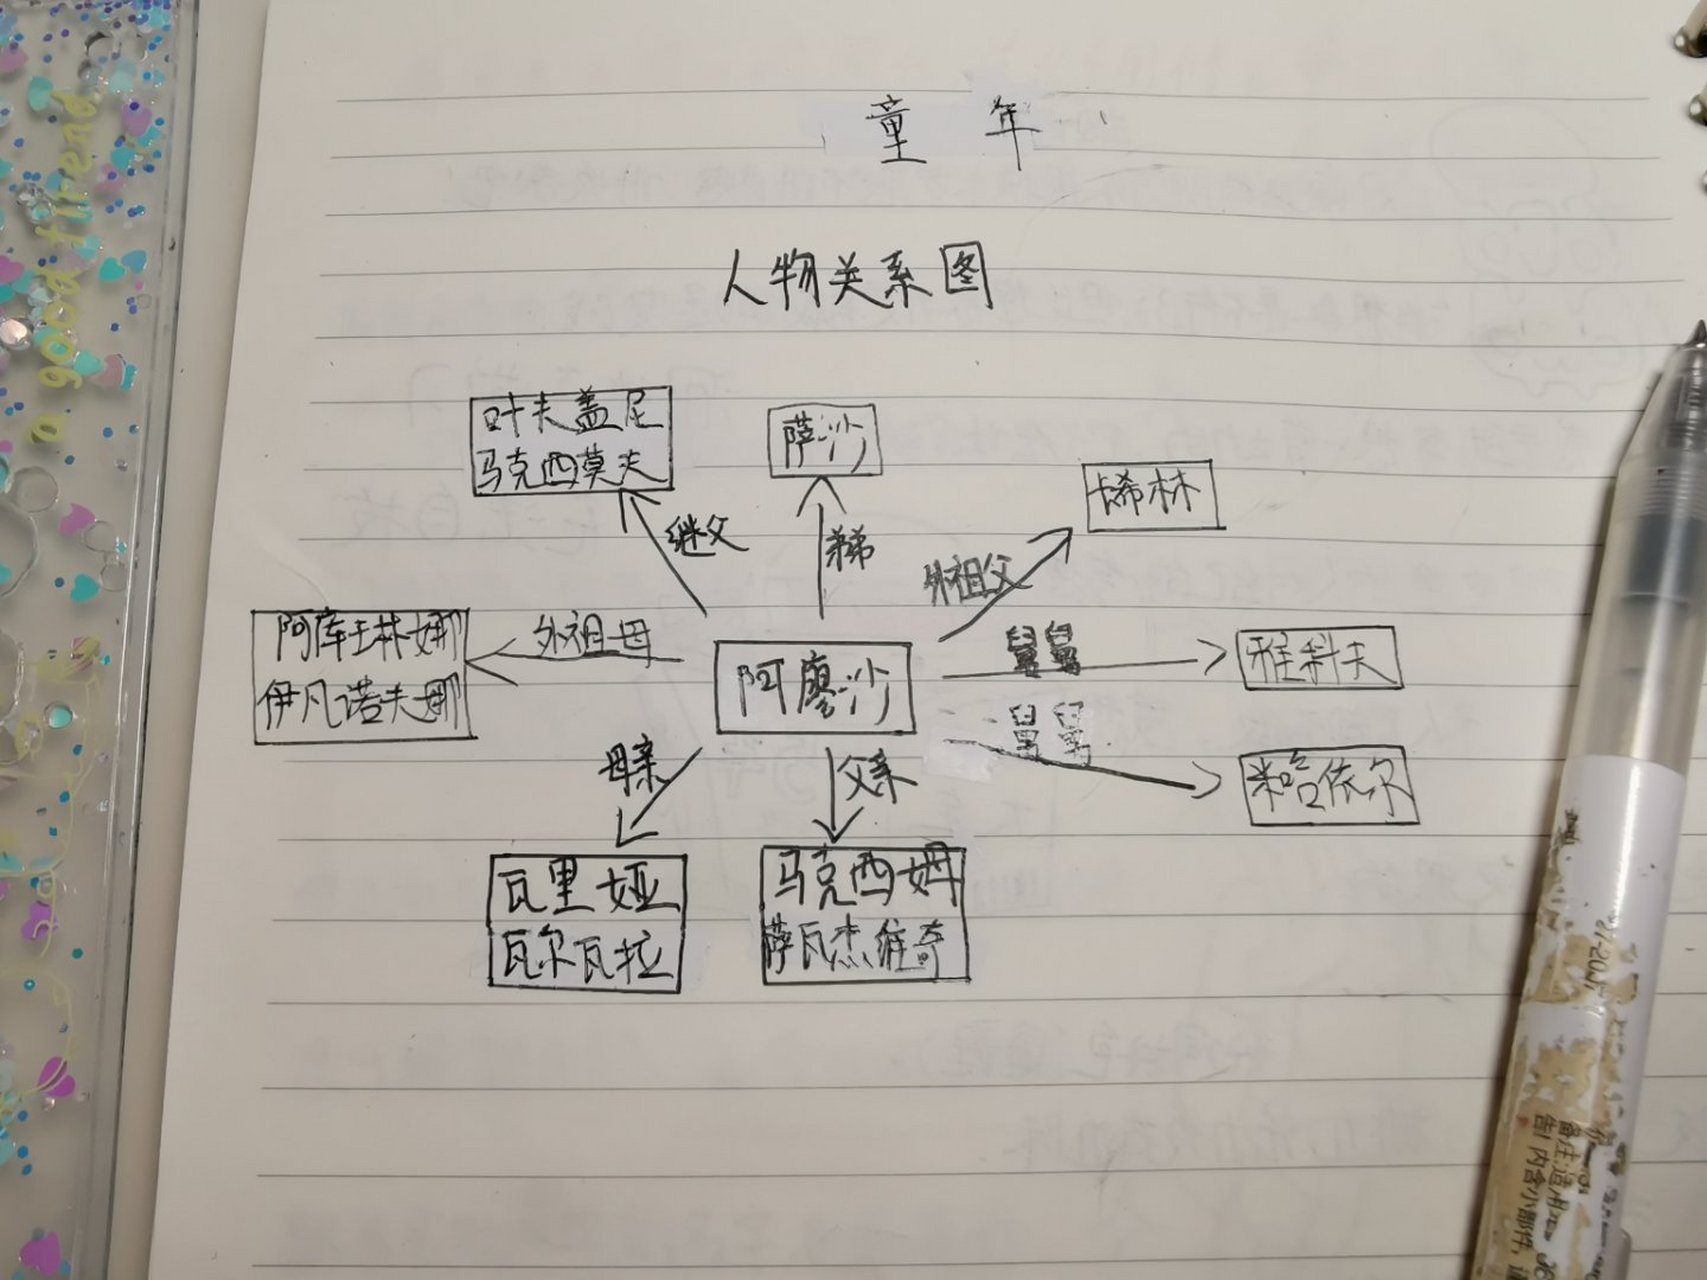 童年
人物关系图
叶夫盖尼
马克西莫夫
萨沙
卡希林
继父
弟
外祖父
阿库琳娜
伊凡诺夫娜
外祖母
阿廖沙
舅舅
雅科夫
舅舅
米哈依尔
母亲
父亲
瓦里娅
瓦尔瓦拉
马克西姆
萨瓦杰维奇
a good friend